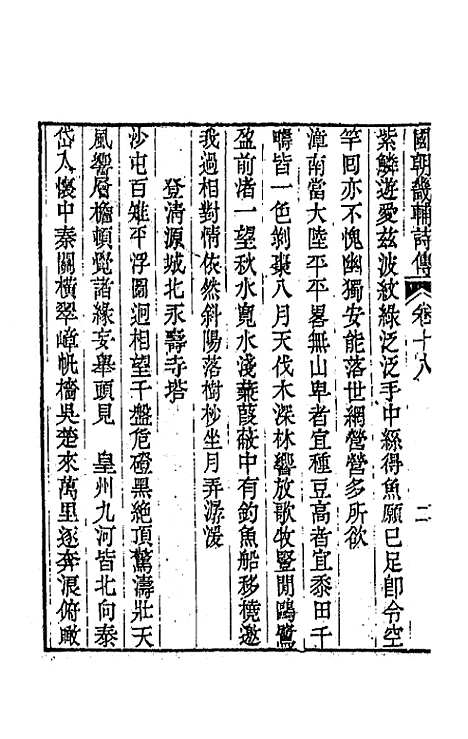 國朝畿輔詩傳 卷十八 二
紫鱗遊愛茲波紋綠泛泛手中絲得魚願已足卽令空
竿囘亦不愧幽獨安能落世網營營多所欲
漳南當大陸平平畧無山卑者宜種豆高者宜黍田千
疇皆一色剝棗八月天伐木深林響放歌牧豎閒鷗鷺
盈前渚一望秋水寬水淺蒹葭𦵏中有釣魚船移橈邀
我過相對情依然斜陽落樹杪坐月弄潺湲
登淸源城北永壽寺塔
沙屯百雉平浮圖迥相望千盤危磴黑絶頂驚濤壯天
風響層檐頓覺諸緣妄舉頭見 皇州九河皆北向泰
岱入懷中秦關橫翠嶂帆檣吳楚來萬里逐奔浪俯瞰